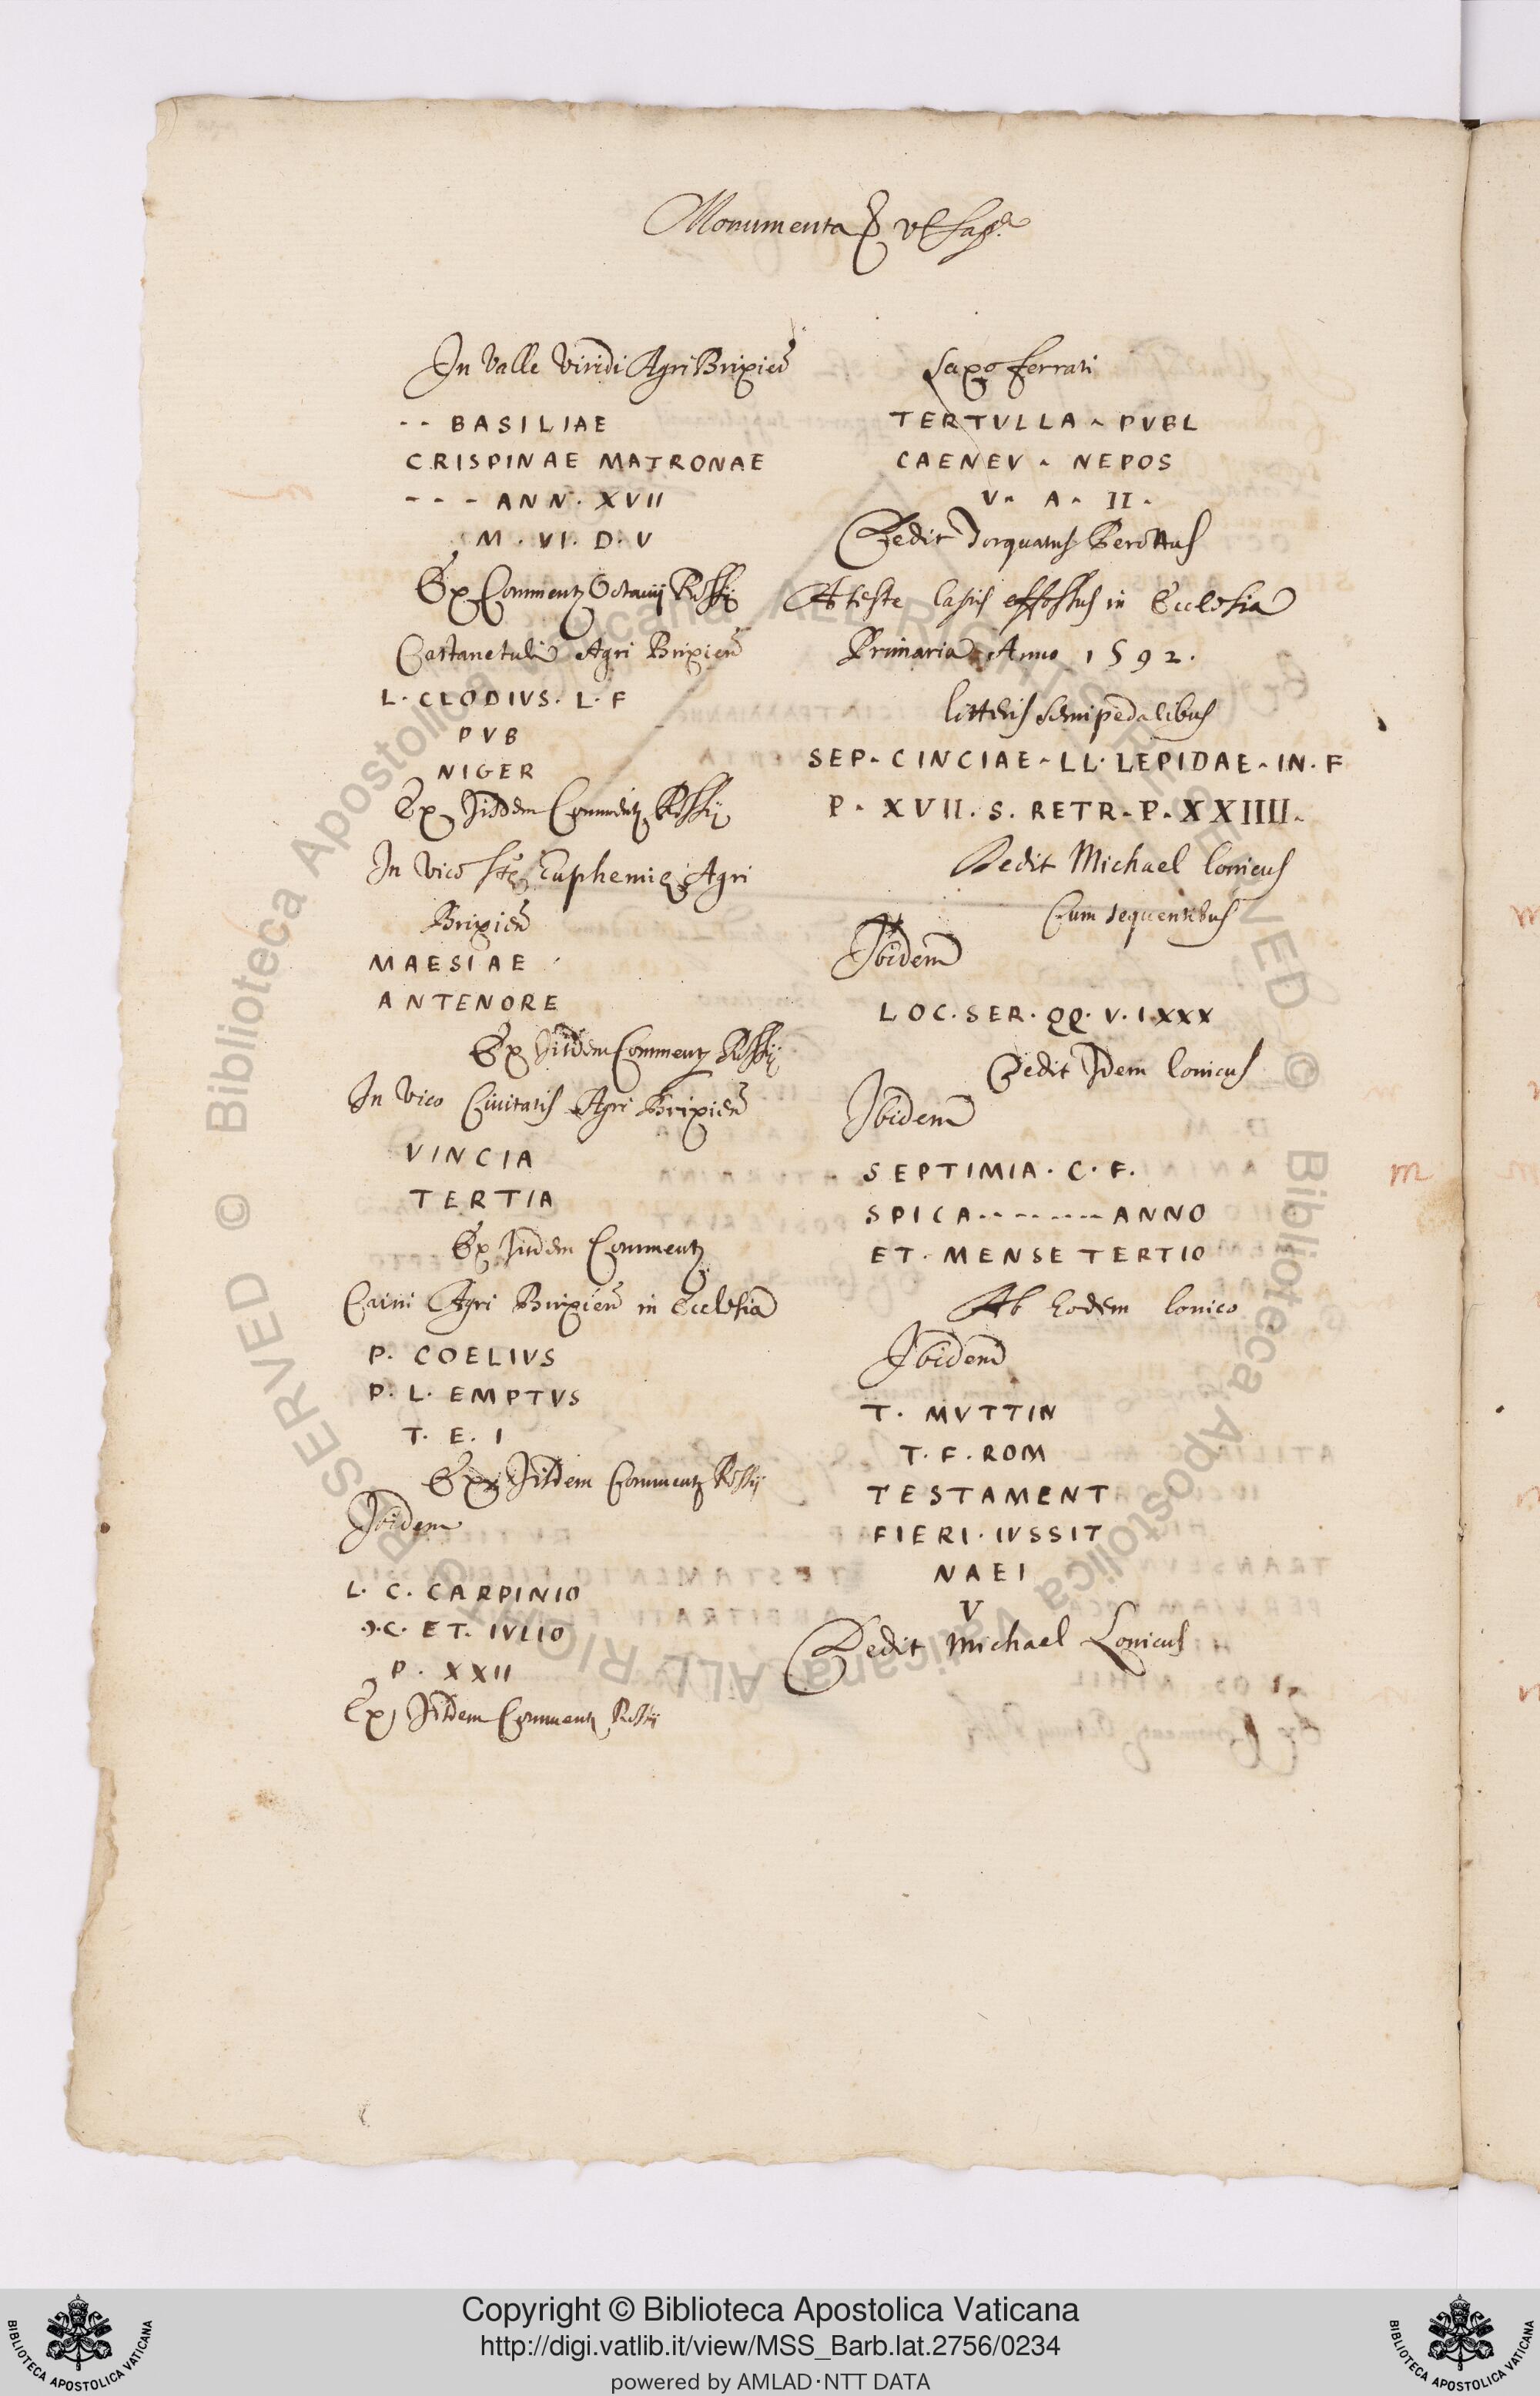 Monumenta & vt sup.ª
In Valle Viridi Agri Brixien̄
-- BASILIAE
CRISPINAE MATRONAE
--- ANN. XVII
M. VI. D. V
Ex Comment Octauij Rossij
Castanetuli Agri Brixien̄
L. CLODIVS. L. F
PVB
NIGER
Ex Iisdem Comment Rossij
In Vico Stę Euphemię Agri
Brixien̄
MAESIAE
ANTENORE
Ex Iisdem Comment Rossij
In Vico Ciuitatis Agri Brixien̄
VINCIA
TERTIA
Ex Iisdem Comment
Caini Agri Brixien̄ in Ecclesia
P. COELIVS
P. L. EMPTVS
T. E. I
Ex Iisdem Comment Rossij
Ibidem
L. C. CARPINIO
Ɔ.C. ET. IVLIO
P. XXII
Ex Iisdem Comment Rossij
Saxo ferrati
TERTVLLA ^ PVBL
CAENEV ^ NEPOS
V ^ A ^ II ^
Dedit Torquatus Perottus
Ateste Lapis effossus in Ecclesia
Primaria Anno 1592.
litteris semipedalibus
SEP ^ CINCIAE ^ LL. LEPIDAE ^ IN. F
P ^ XVII. S. RETR ^ P ^ XXIIII ^
Dedit Michael Lonicus
Cum sequentibus
Ibidem
LOC. SER. QQ. V. IXXX
Dedit Idem Lonicus
Ibidem
SEPTIMIA. C. F.
SPICA -------- ANNO
ET. MENSE TERTIO
Ab Eodem Lonico
Ibidem
T. MVTTIN
T. F. ROM
TESTAMENT
FIERI. IVSSIT
NAEI
V
Dedit Michael Lonicus
m
Copyright © Biblioteca Apostolica Vaticana
http://digi.vatlib.it/view/MSS_Barb.lat.2756/0234
powered by AMLAD·NTT DATA
BIBLIOTECA APOSTOLICA VATICANA
BIBLIOTECA APOSTOLICA VATICANA